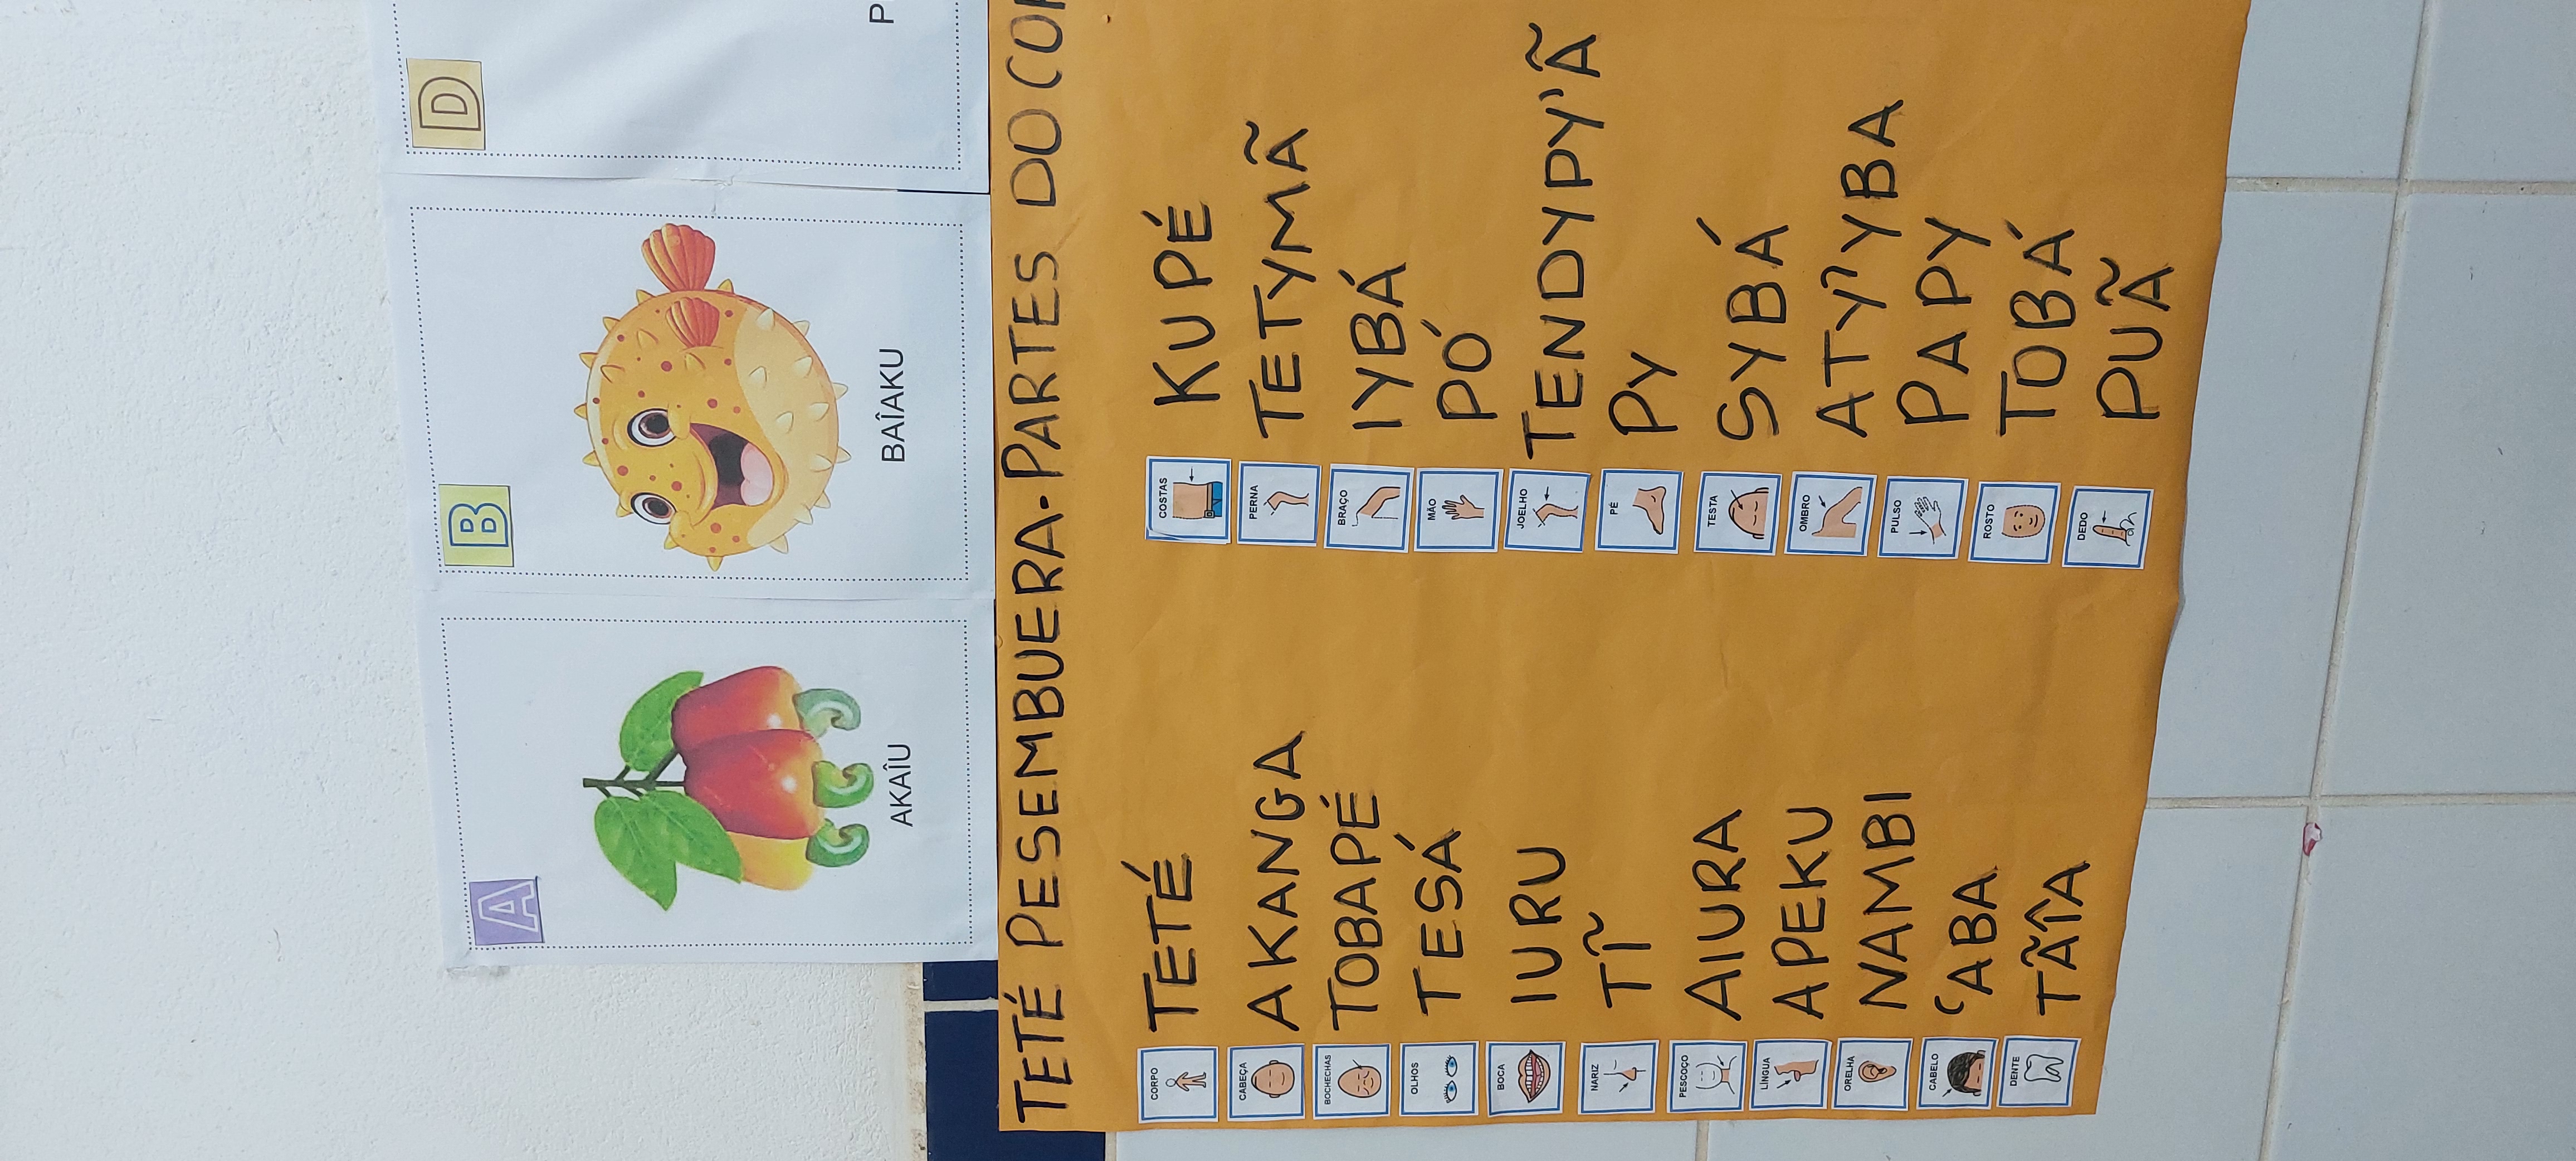 A
B
D
AKAÎU
BAÎAKU
P
TETÉ PESEMBUERA. PARTES DO COR
CORPO TETÉ
CABEÇA AKANGA
BOCHECHAS TOBAPÉ
OLHOS TESÁ
BOCA IURU
NARIZ TĨ
PESCOÇO AIURA
LÍNGUA APEKU
ORELHA NAMBI
CABELO 'ABA
DENTE TÃÎA
COSTAS KUPÉ
PERNA TETYMÃ
BRAÇO IYBÁ
MÃO PÓ
JOELHO TENDYPY'Ã
PÉ PY
TESTA SYBÁ
OMBRO ATY'YBA
PULSO PAPY
ROSTO TOBÁ
DEDO PUÃ